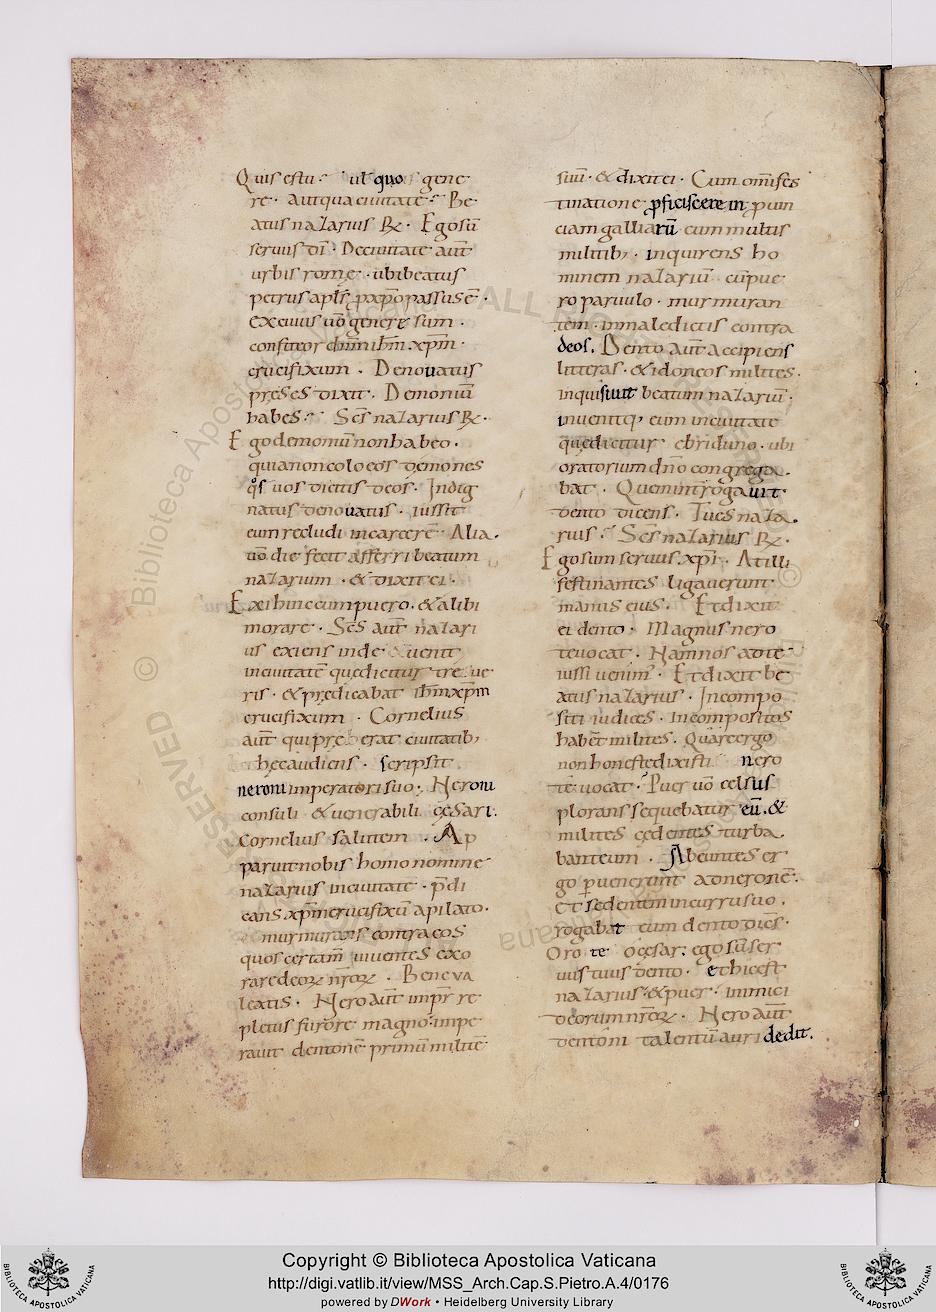 Quis es tu · ul' quo gene
re · Aut qua ciuitate · Be
atus nazarius R̄· Ego sū
seruus dī · De ciuitate aut̄
urbis rome · ubi beatus
petrus apl's p xp̄o passus ē ·
Ex cuius uō genere sum ·
confiteor dn̄m ih̄m xp̄m ·
crucifixum · Denouatus
preses dixit · Demoniū
habes · Sc̄s nazarius R̄·
Ego demoniū non habeo ·
quia non colo eos demones
qos uos dicitis deos · Indig
natus denouatus · iussit
eum recludi in carcerē · Alia
uō die fecit afferri beatum
nazarium · & dixit ei ·
Exi hinc cum puero · & alibi
morare · Sc̄s aut̄ nazari
us exiens inde & uenit
in ciuitatē que dicitur treue
ris · & predicabat ih̄m xp̄m
crucifixum · Cornelius
aut̄ qui preerat ciuitatib;
hec audiens · scripsit
neroni imperatori suo · Neroni
consuli & uenerabili cesari ·
Cornelius salutem · Ap
paruit nobis homo nomine
nazarius in ciuitate · p̄di
cans xp̄m crucifixū a pilato ·
murmurans contra eos
quos certam̄ uiuentes exo
rare deoꝝ nr̄oꝝ · Bene va
leatis · Nero aut̄ impr̄ re
pletus furore magno · impe
rauit dentonē primū militē
suū · & dixit ei · Cum om̄i fes
tinatione pficiscere in prouin
ciam galliarū cum multis
militib; · inquirens ho
minem nazariū · cū pue
ro paruulo · murmuran
tem · in maledictis contra
deos. Dento aut̄ accipiens
litteras · & idoneos milites ·
inquisiuit beatum nazariū ·
inuenitq; eum in ciuitate
que dicitur ebriduno · ubi
oratorium dn̄o congrega
bat · Quem int̄rogauit
dento dicens · Tu es naza
rius · Sc̄s nazarius R̄·
Ego sum seruus xp̄i · At illi
festinantes ligauerunt
manus eius · Et dixit
ei dento · Magnus nero
te uocat · Nam nos ad te
iussi uenim' · Et dixit be
atus nazarius · Incompo
siti iudices · incompositos
habet milites · Quare ergo
non honeste dixisti nero
te uocat · Puer uō celsus
plorans sequebatur eū · &
milites cedentes turba
bant eum · Abeuntes er
go puenerunt ad neronē ·
Et sedentem in cursu suo ·
rogabat eum dento dicēs ·
Oro te o cesar · ego sū ser
uus tuus dento · et hic est
nazarius · & puer · inimici
deorum nr̄oꝝ · Nero aut̄
dentoni talentū auri dedit.
Copyright © Biblioteca Apostolica Vaticana
http://digi.vatlib.it/view/MSS_Arch.Cap.S.Pietro.A.4/0176
powered by DWork • Heidelberg University Library